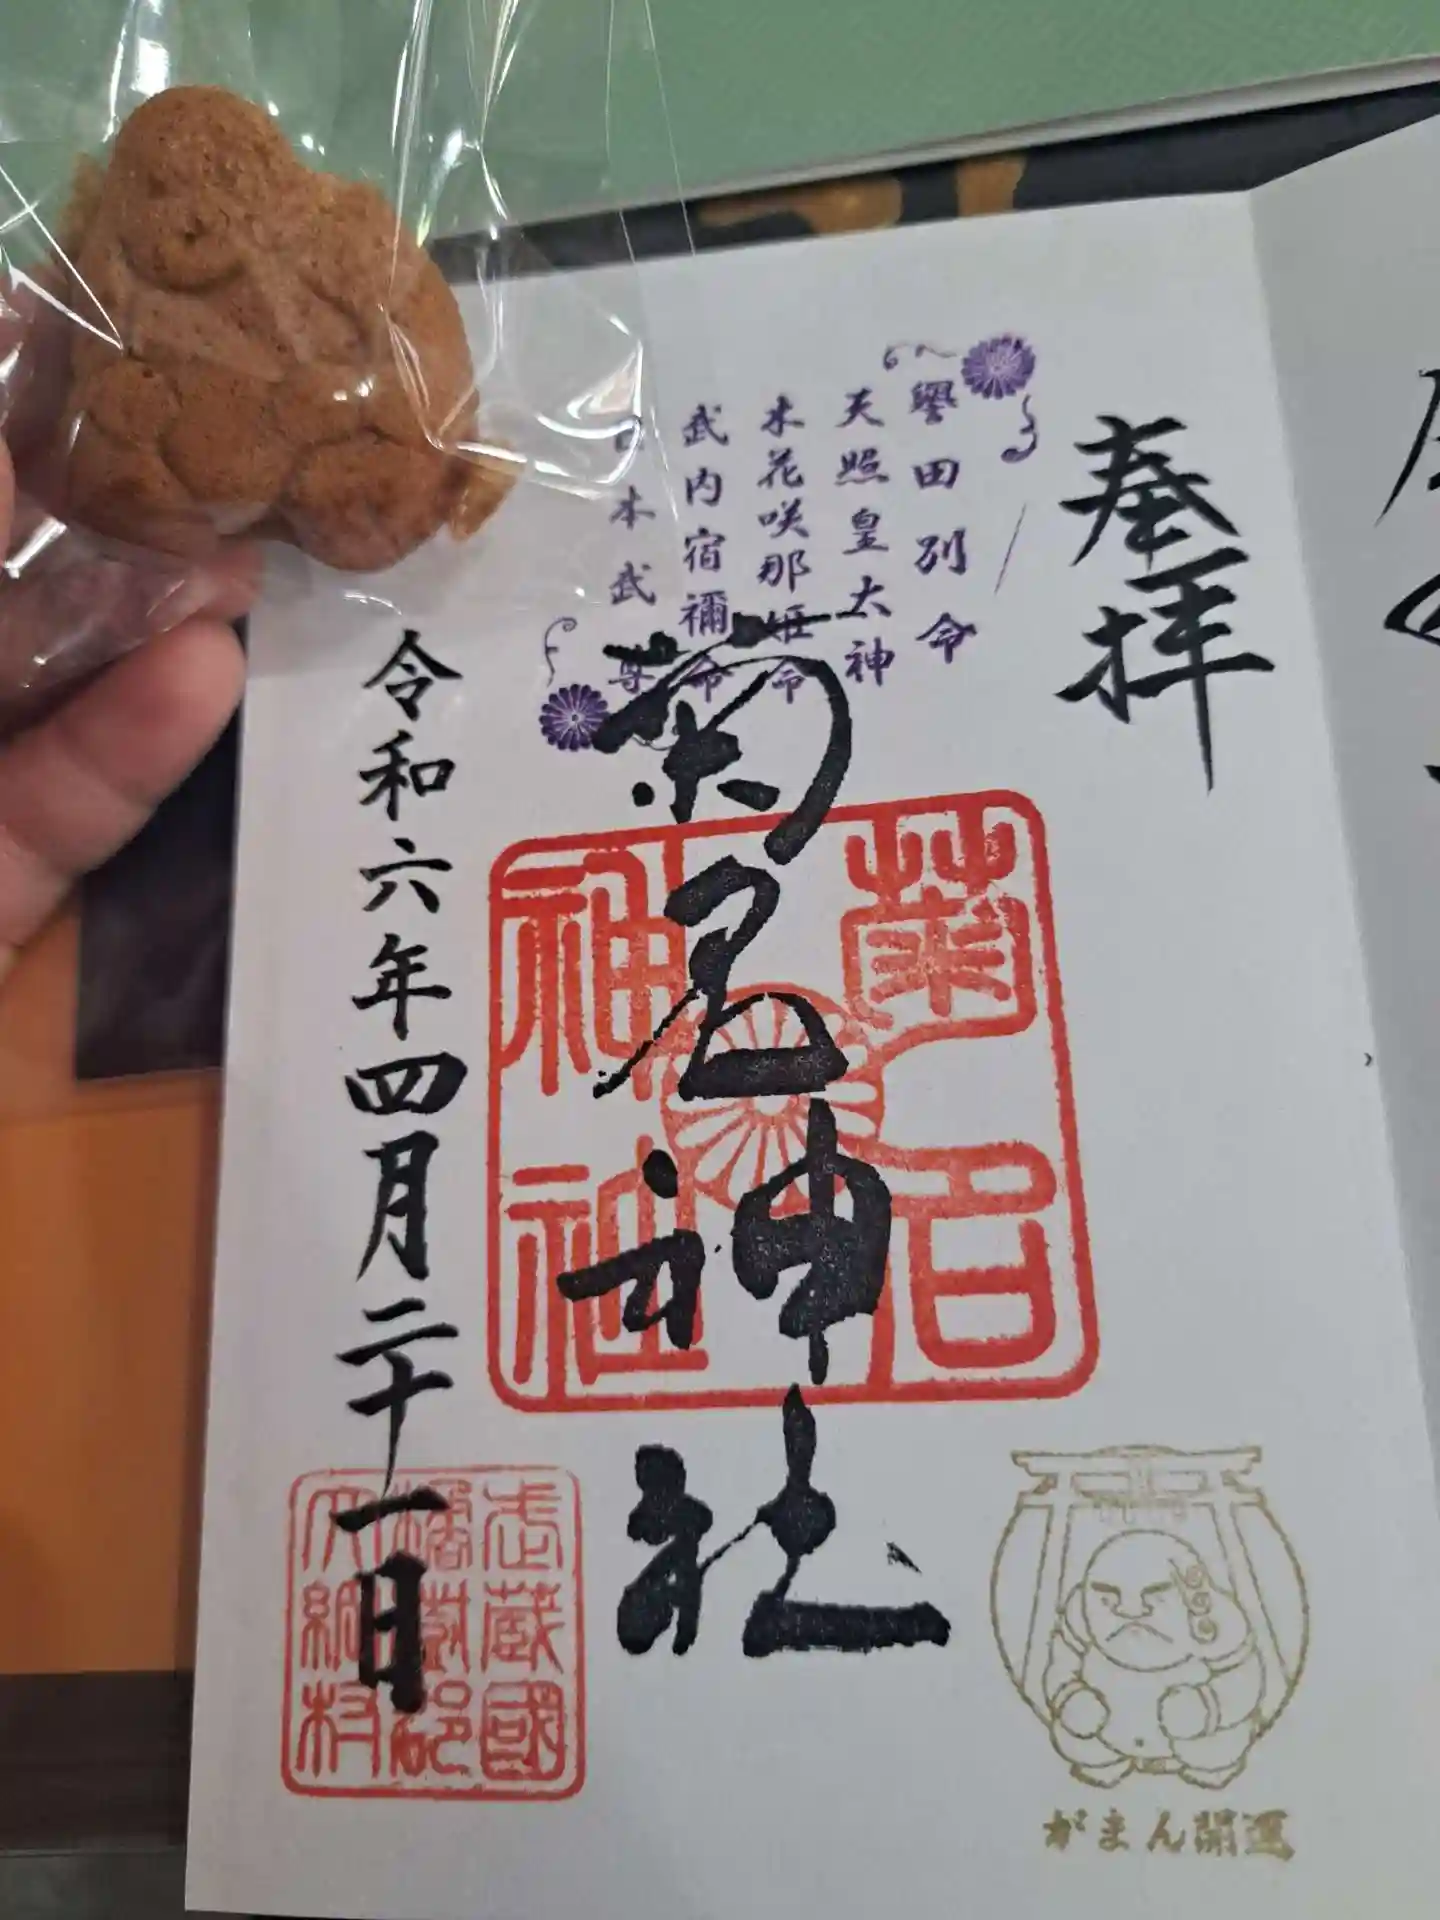 奉拝
譽田別命
天照皇大神
木花咲耶姫命
武内宿禰命
日本武尊
菊名神社
菊名
神社
令和六年四月二十一日
武蔵國
橘樹郡
大綱村
がまん開運